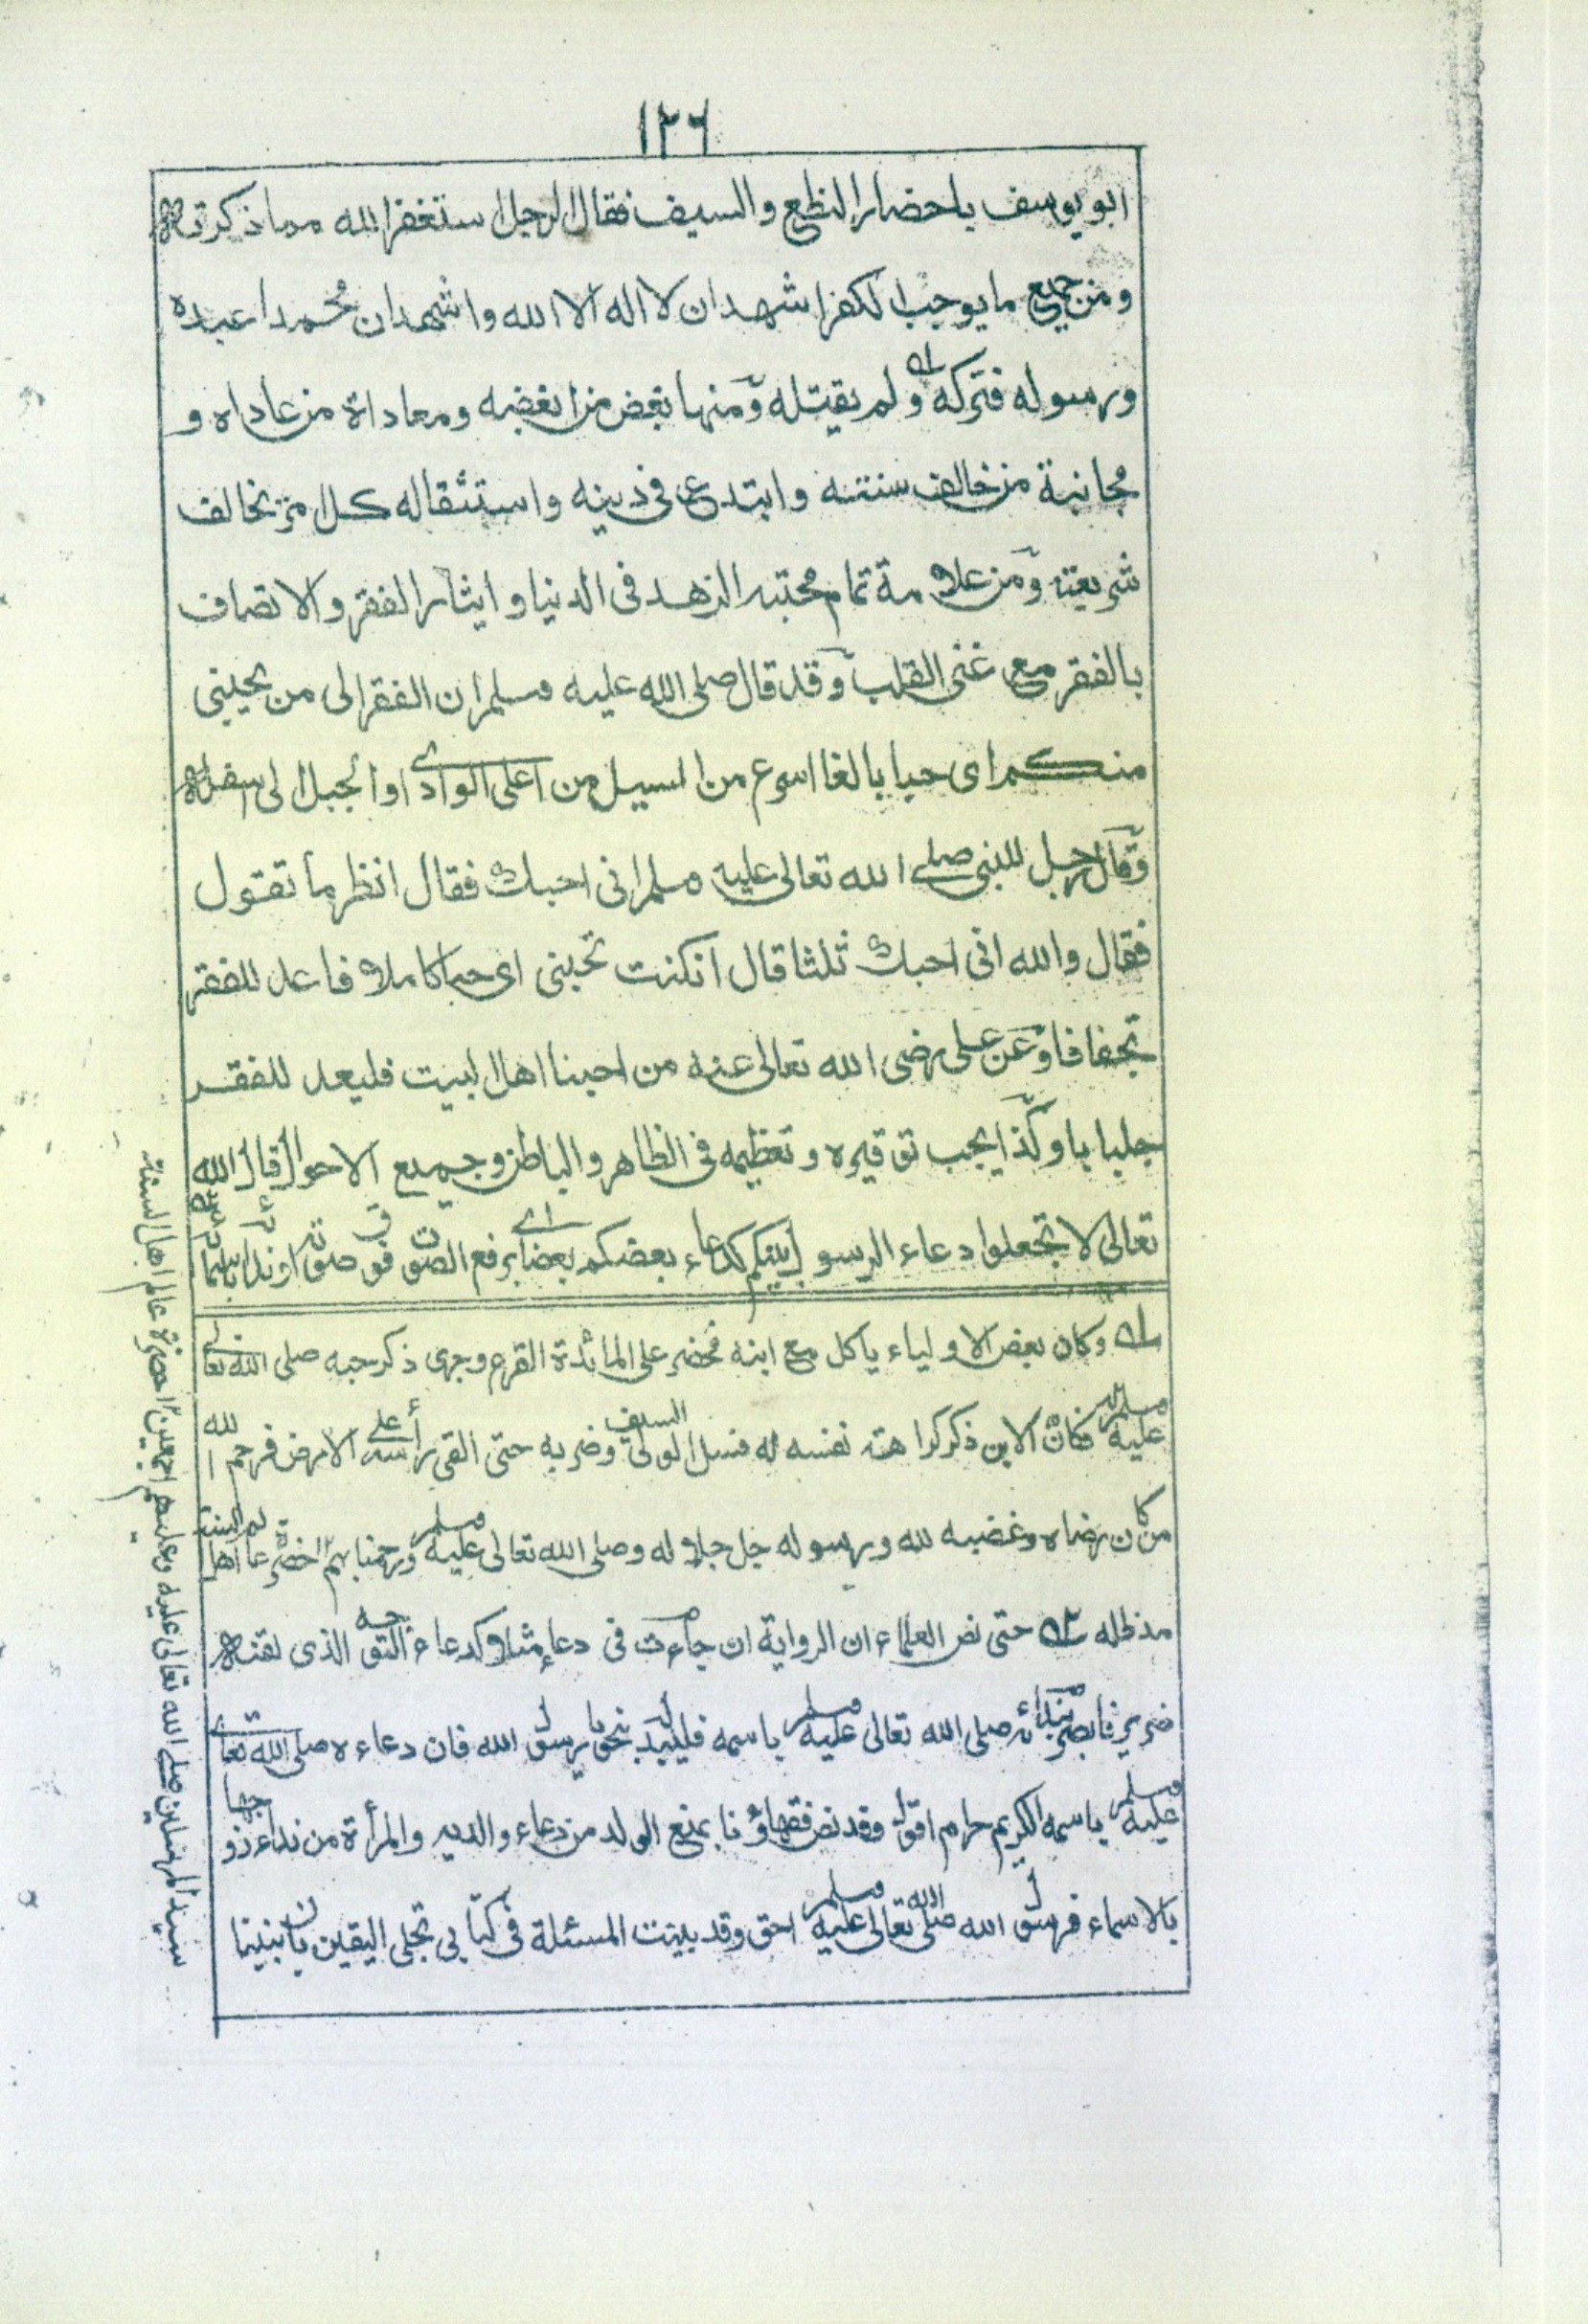 ١٢٦
ابو يوسف باحضار النطع والسيف فقال الرجل استغفر الله مما ذكرته
ومن جميع ما يوجب الكفر اشهد ان لا اله الا الله واشهد ان محمدا عبده
ورسوله فتركه ولم يقتله ومنها بغض من ابغضه ومعاداة من عاداه و
مجانبة من خالف سنته وابتدع في دينه واستثقاله كل من يخالف
شريعته ومن علامة تمام محبته الزهد في الدنيا وايثار الفقر والاتصاف
بالفقر مع غنى القلب وقد قال صلى الله عليه وسلم ان الفقر الى من يحبني
منكم اى حبا بالغا اسرع من السيل من اعلى الوادى او الجبل الى اسفله
وقال رجل للنبي صلى الله تعالى عليه وسلم انى احبك فقال انظر ما تقول
فقال والله انى احبك ثلثا قال ان كنت تحبنى اى حبا كاملا فاعد للفقر
تجفافا وعن على رضى الله تعالى عنه من احبنا اهل البيت فليعد للفقر
جلبابا وكذا يجب توقيره وتعظيمه فى الظاهر والباطن وجميع الاحوال قال الله
تعالى لا تجعلوا دعاء الرسول بينكم كدعاء بعضكم بعضا اى برفع الصوت فوق صوته او ندائه باسمائه
له وكان بعض الاولياء ياكل مع ابنه فحضر على المائدة القرع وجرى ذكر حبه صلى الله تعالى
عليه وسلم فكأن الابن ذكر كراهته نفسه له فسل الولى السيف وضربه حتى القى رأسه على الارض فرحم الله
من كان رضاه وغضبه لله ورسوله جل جلاله وصلى الله تعالى عليه وسلم ورحمنا بهم احضرة عالم اهل السنة
مد ظله حتى نص العلماء ان الرواية ان جاءت فى دعاء مثلا كدعاء التوجه الذى لقنه
ضرير فابصر بندائه صلى الله تعالى عليه وسلم باسمه فليبدله بنحو يا رسول الله فان دعاءه صلى الله تعالى
عليه وسلم باسمه الكريم حرام اقول وقد نص فقهاؤنا بمنع الولد من دعاء والديه والمرأة من نداء زوجها
بالاسماء فرسول الله صلى الله تعالى عليه وسلم احق وقد بينت المسئلة فى كتابى تجلى اليقين بان نبينا
سيد المرسلين صلى الله تعالى عليه وعليهم اجمعين احضرة عالم اهل السنة